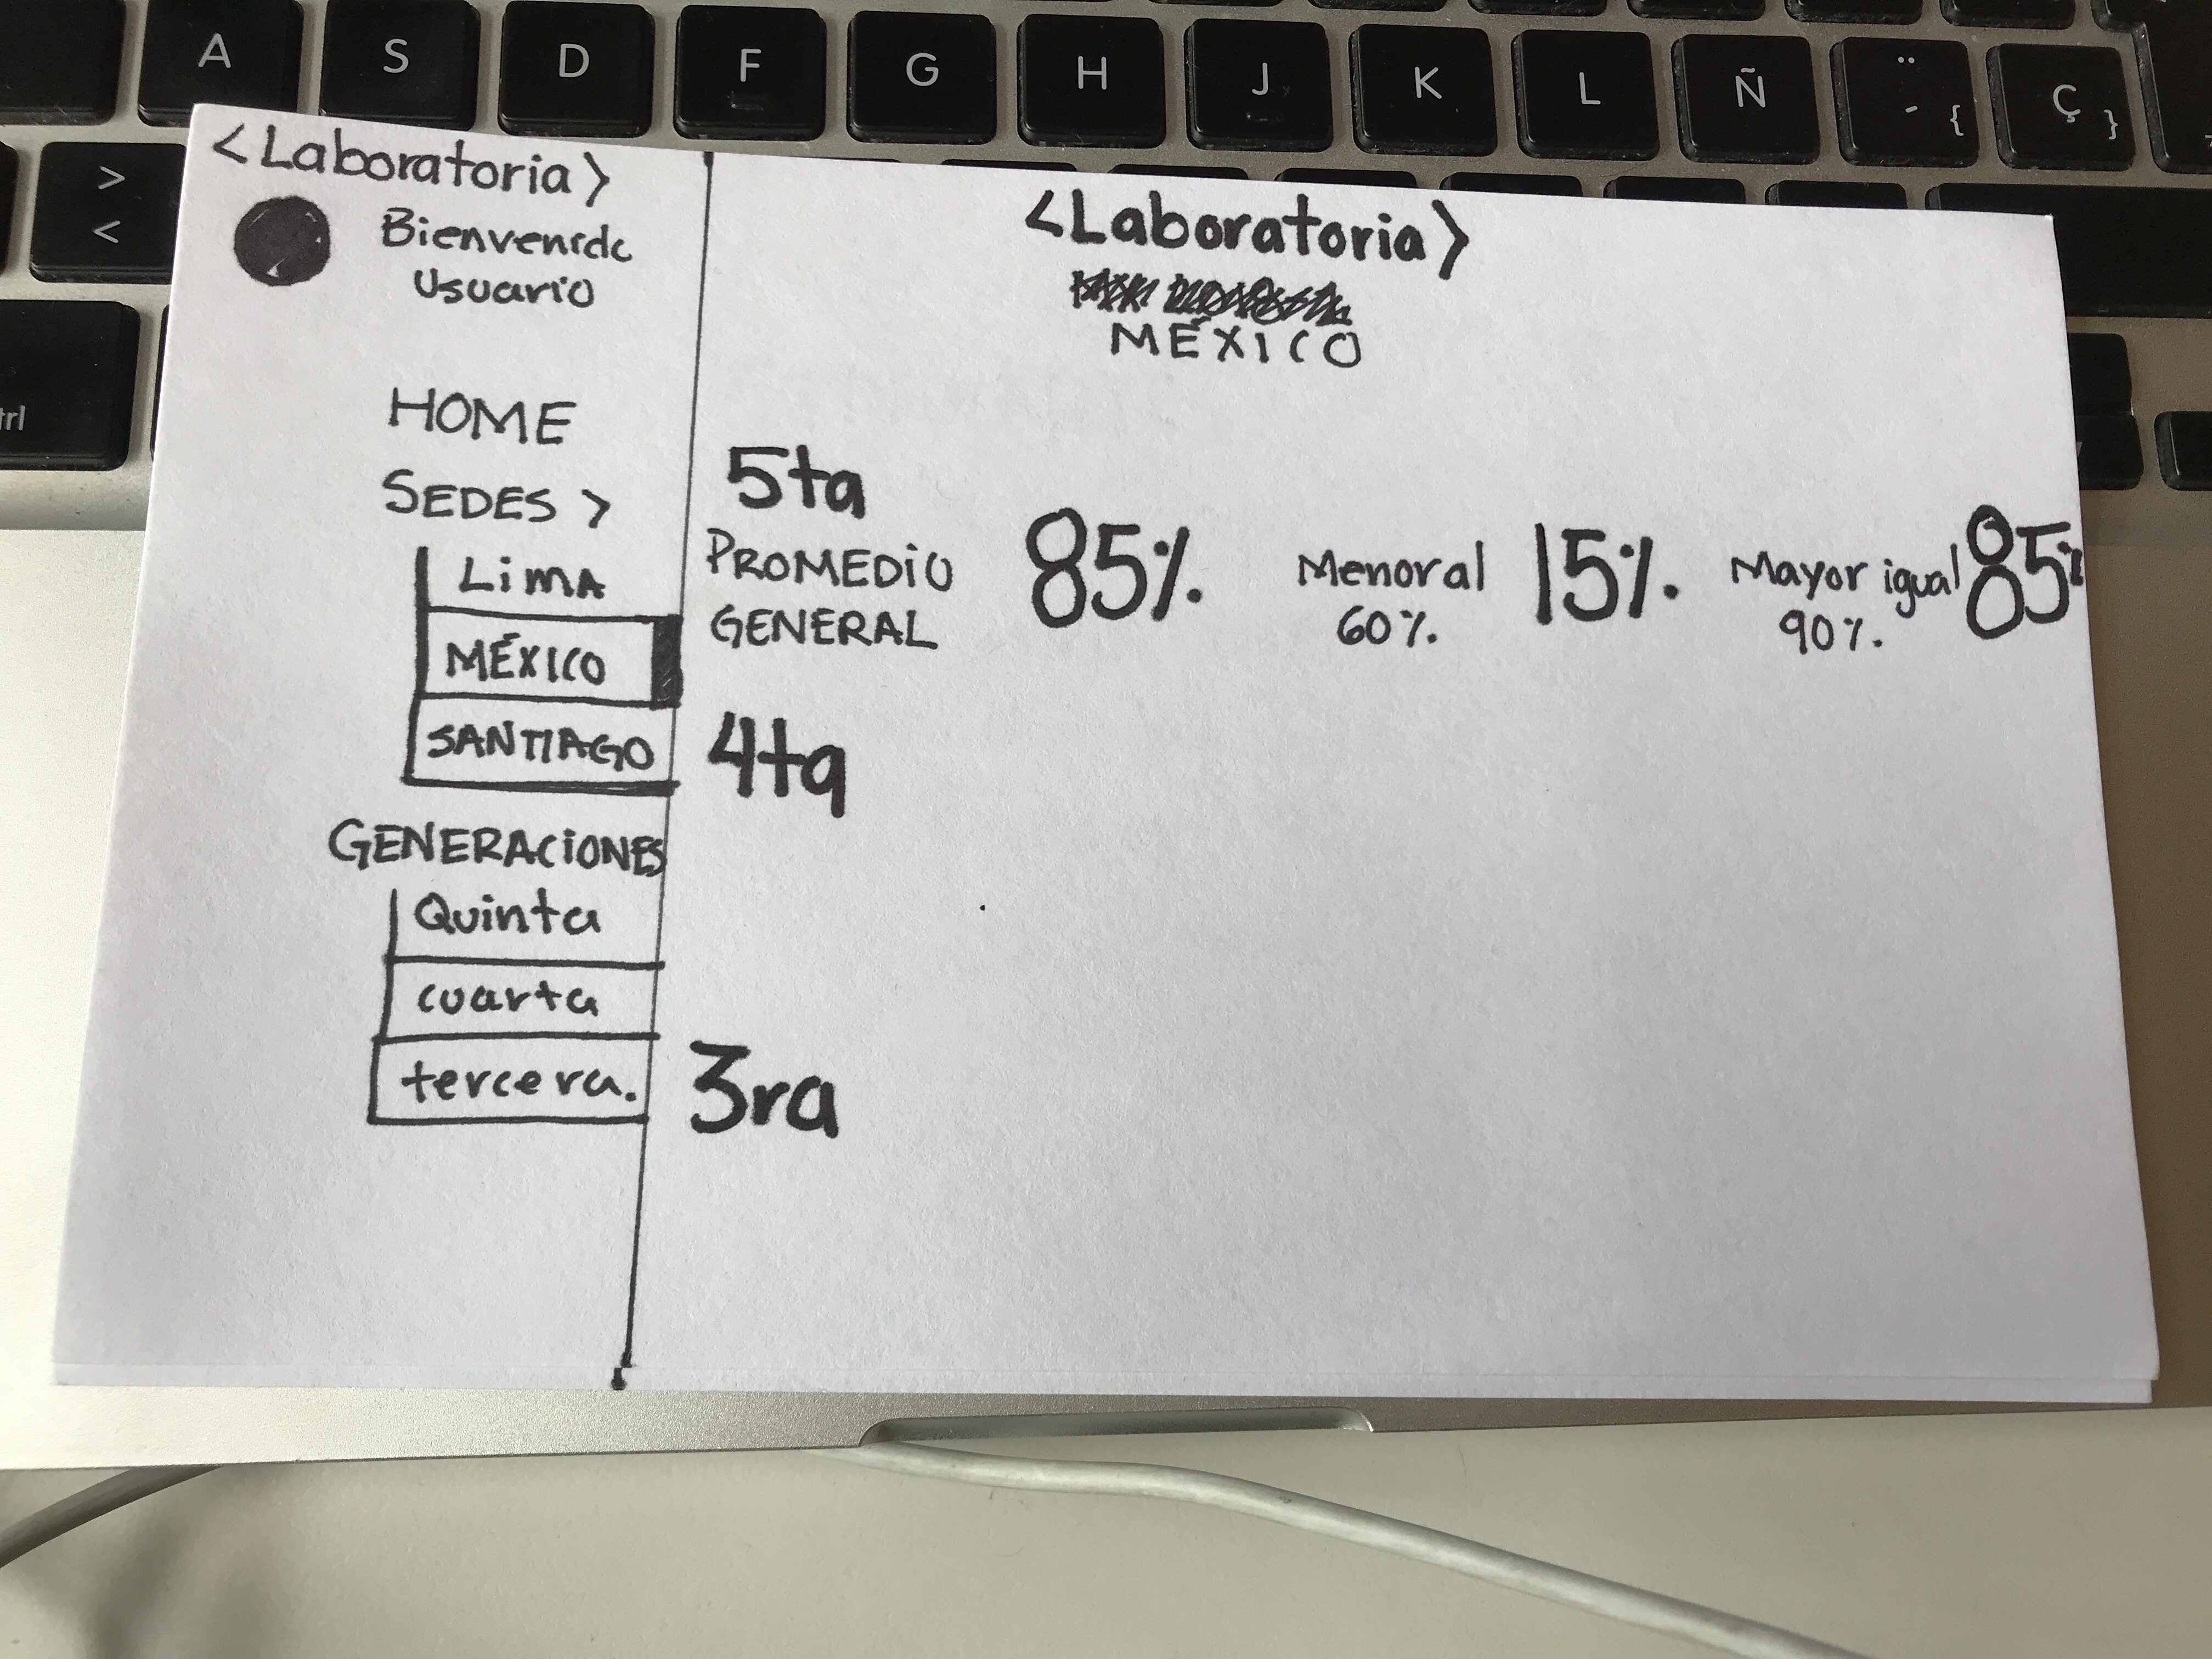 A S D F G H J K L Ñ ¨ ´ { Ç }
> <
trl
<Laboratoria>
Bienvenido
Usuario
HOME
SEDES >
Lima
MÉXICO
SANTIAGO
GENERACIONES
Quinta
cuarta
tercera.
<Laboratoria>
MÉXICO
5ta
PROMEDIO
GENERAL
85%.
Menoral
60%.
15%.
Mayor igual
90%.
85%
4ta
3ra